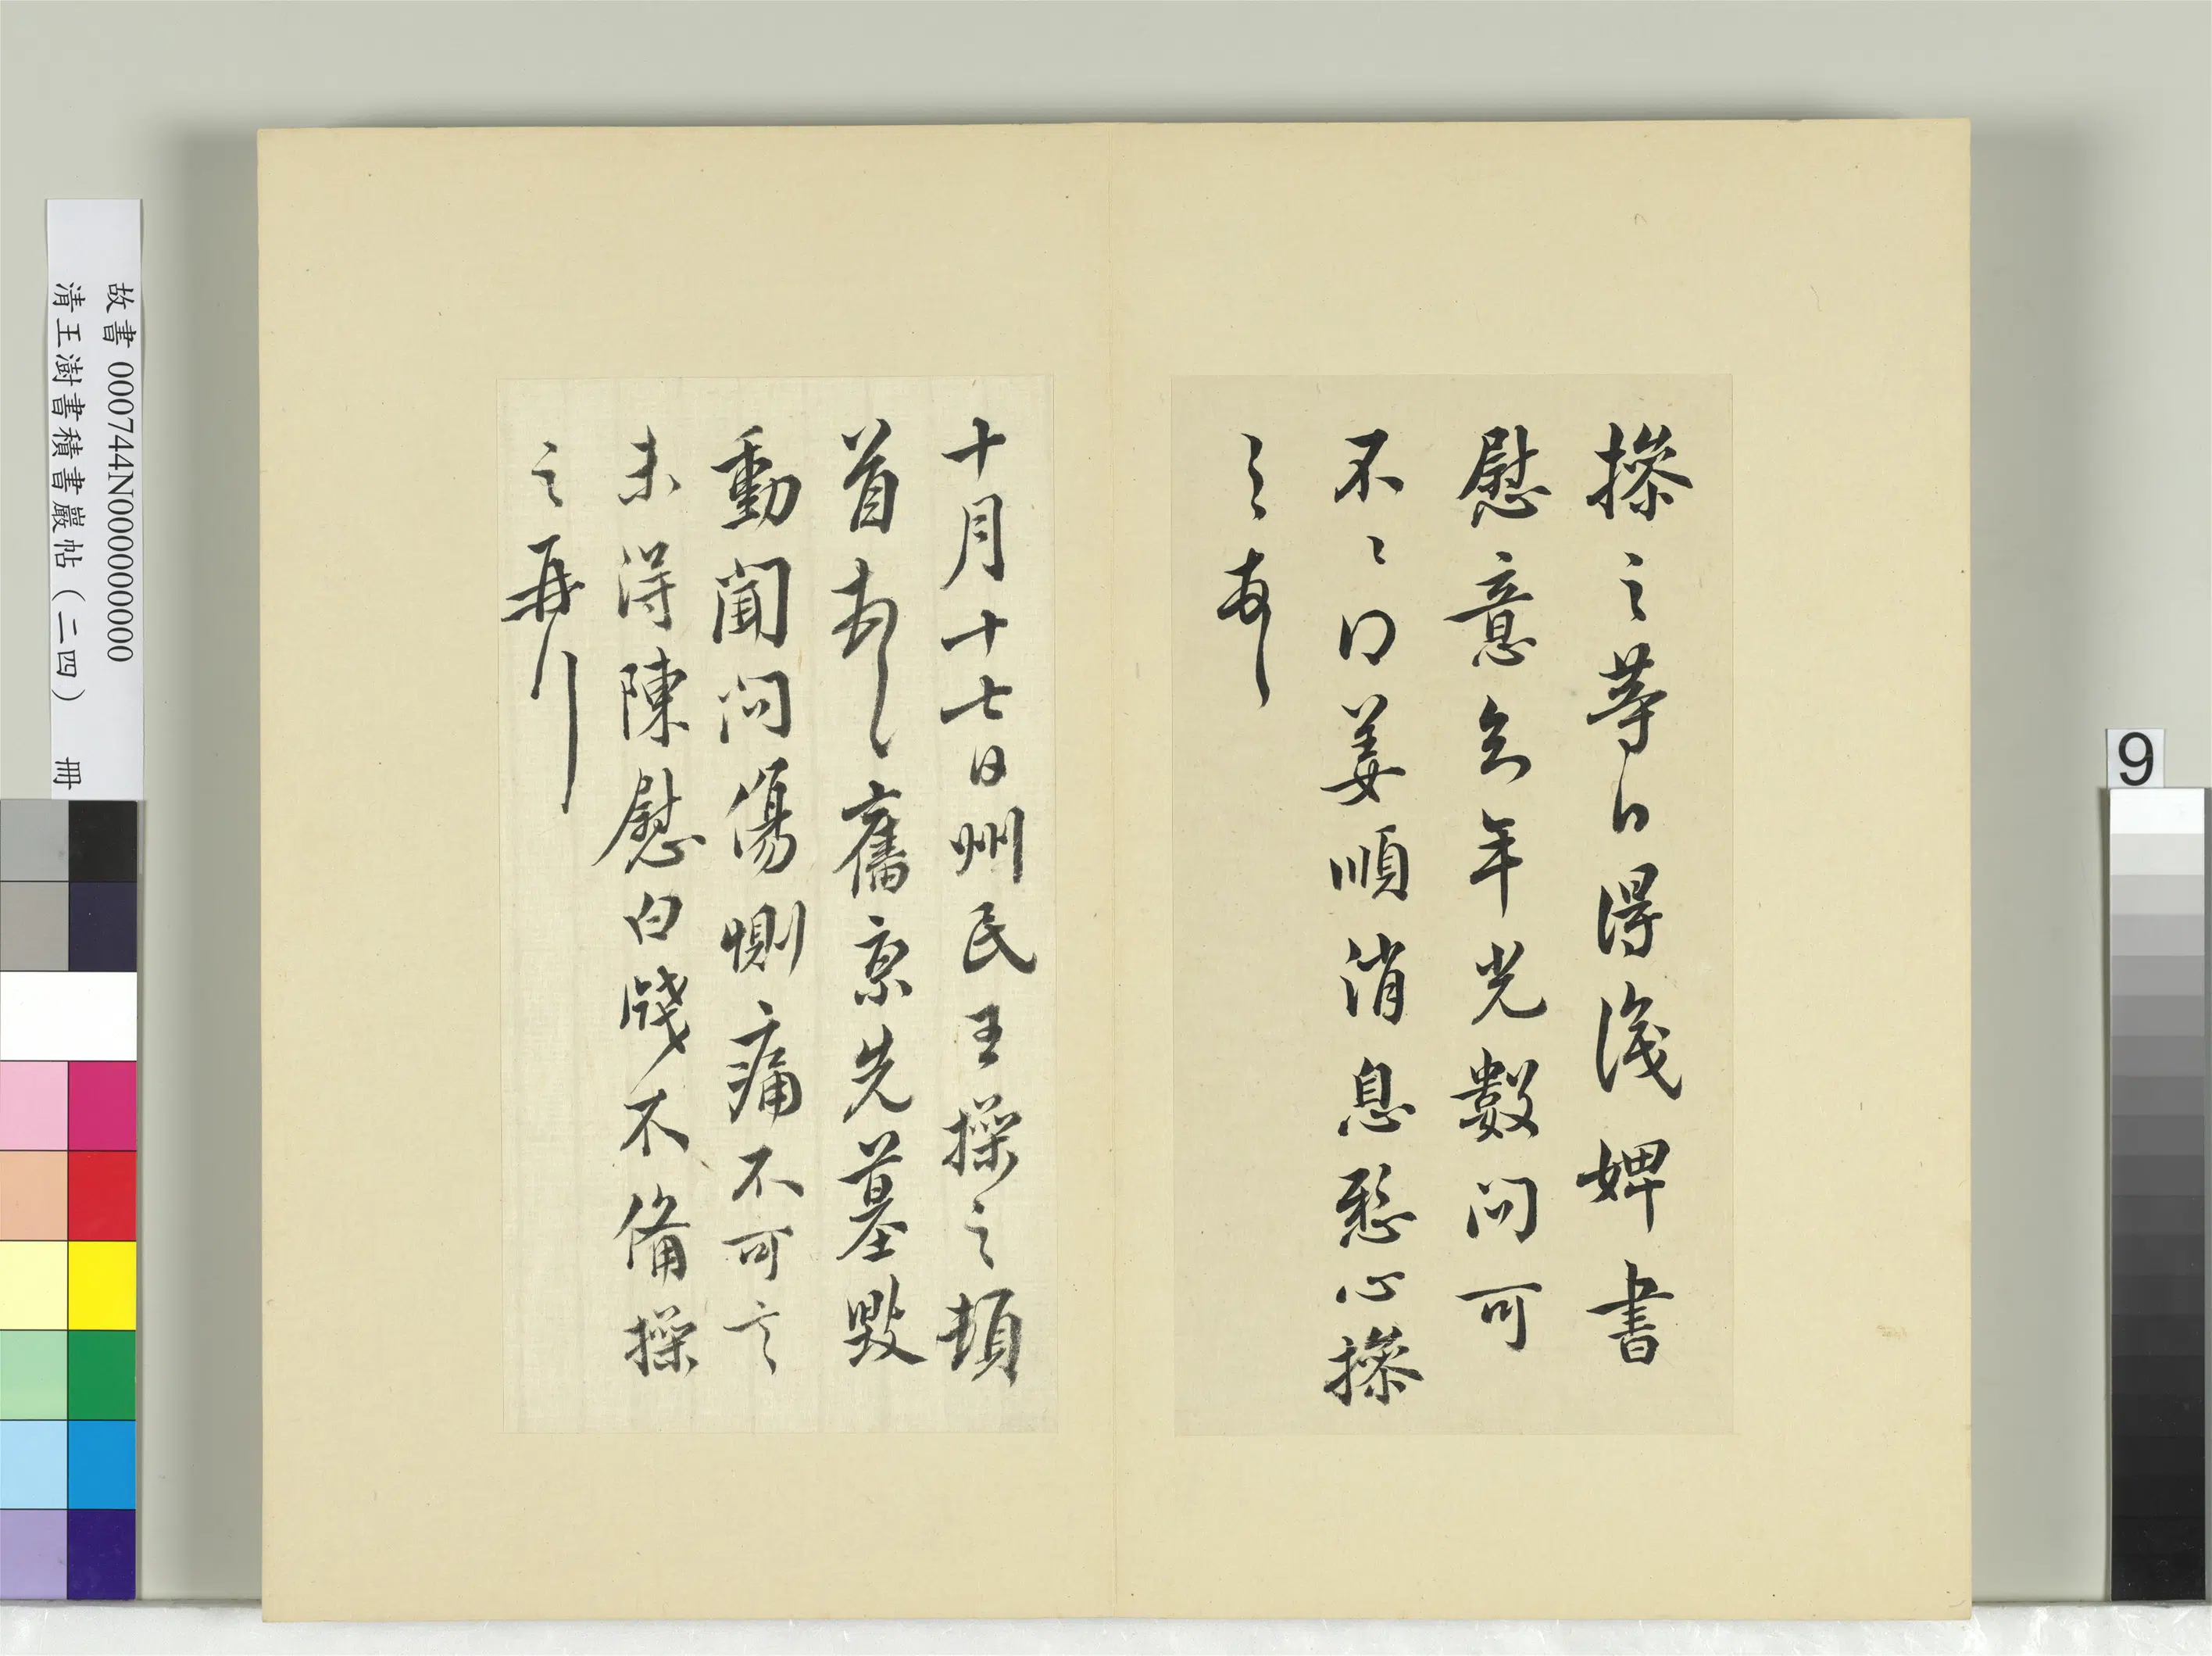 操之等白得識婢書
慰意年光數問可
不姜順消息愁心操
之
十月十七日州民王操之頓
首再拜舊京先墓毀
動聞問傷惻痛不可言
未得陳慰白牋不備操
之再拜
故書 000744N000000000
清王澍書積書巖帖(二四) 冊
9